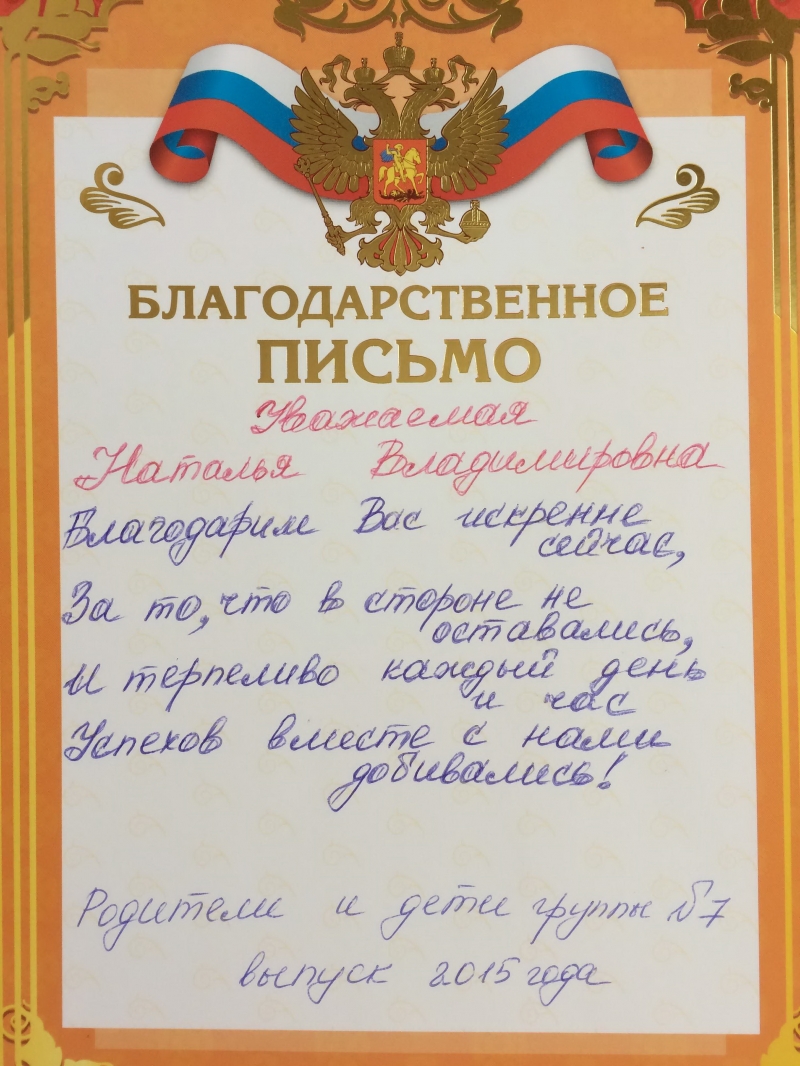 БЛАГОДАРСТВЕННОЕ
ПИСЬМО
Уважаемая
Наталья Владимировна
Благодарим Вас искренне
сейчас,
За то, что в стороне не
оставались,
И терпеливо каждый день
и час
Успехов вместе с нами
добивались!
Родители и дети группы №7
выпуск 2015 года